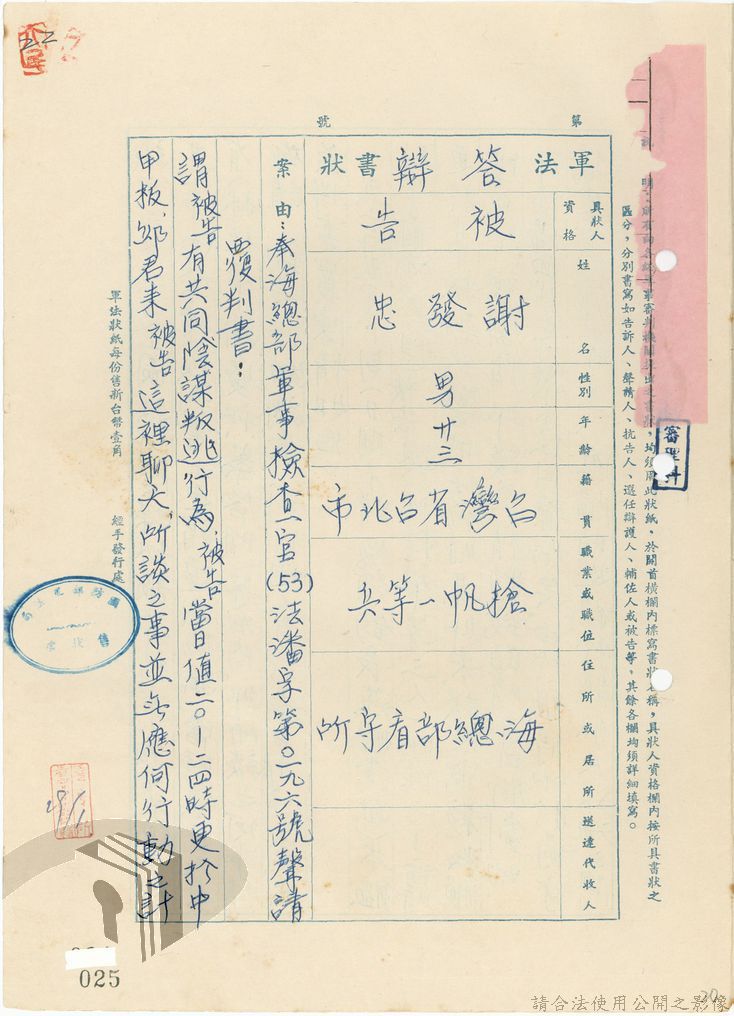 說明：
均須用此狀紙，於關首橫欄內標寫書狀名稱，具狀人資格欄內按所具書狀之
區分，分別書寫如告訴人、聲請人、抗告人、選任辯護人、輔佐人或被告等，其餘各欄均須詳細填寫。
審理科
第 號
軍法答辯書狀
具狀人資格 被告
姓名 謝發忠
性別 男
年齡 廿三
籍貫 台灣省台北市
職業或職位 槍帆一等兵
住所或居所 海總部看守所
送達代收人
案由：奉海總部軍事檢查官(53)法潘字第0二九六號聲請
覆判書：
謂被告有共同陰謀叛逃行為，被告當日值二0-二四時更於中
甲板，邱君來被告這裡聊大所談之事並無應何行動之計
軍法狀紙每份售新台幣壹角
經手發行處
025
22
20
請合法使用公開之影像